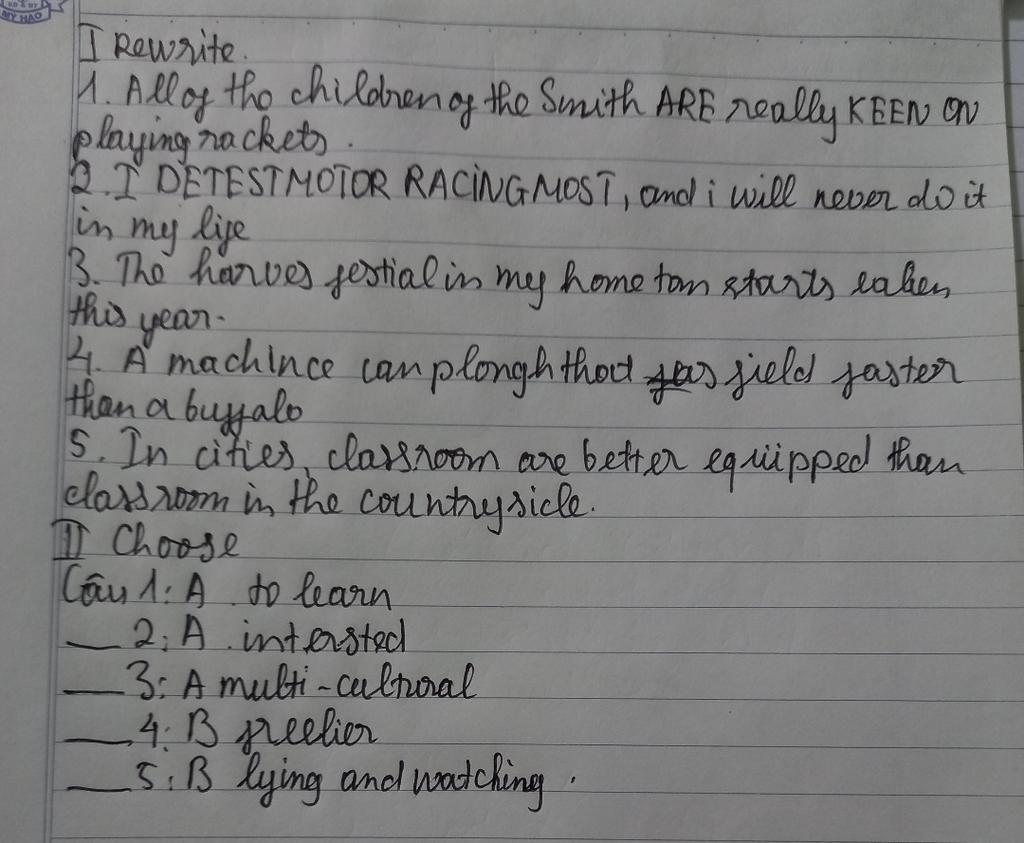 MY HAO
I Rewrite.
1. All of the children of the Smith ARE really KEEN ON
playing rackets.
2. I DETEST MOTOR RACING MOST, and i will never do it
in my life
3. The harves festial in my home ton starts
this year.
4. A machince can plough that field faster
than a buffalo
5. In cities, classroom are better equiipped than
classroom in the countryside.
II Choose
Câu 1: A to learn
— 2: A intersted
— 3: A multi-cultural
— 4: B freelier
— 5: B lying and watching.